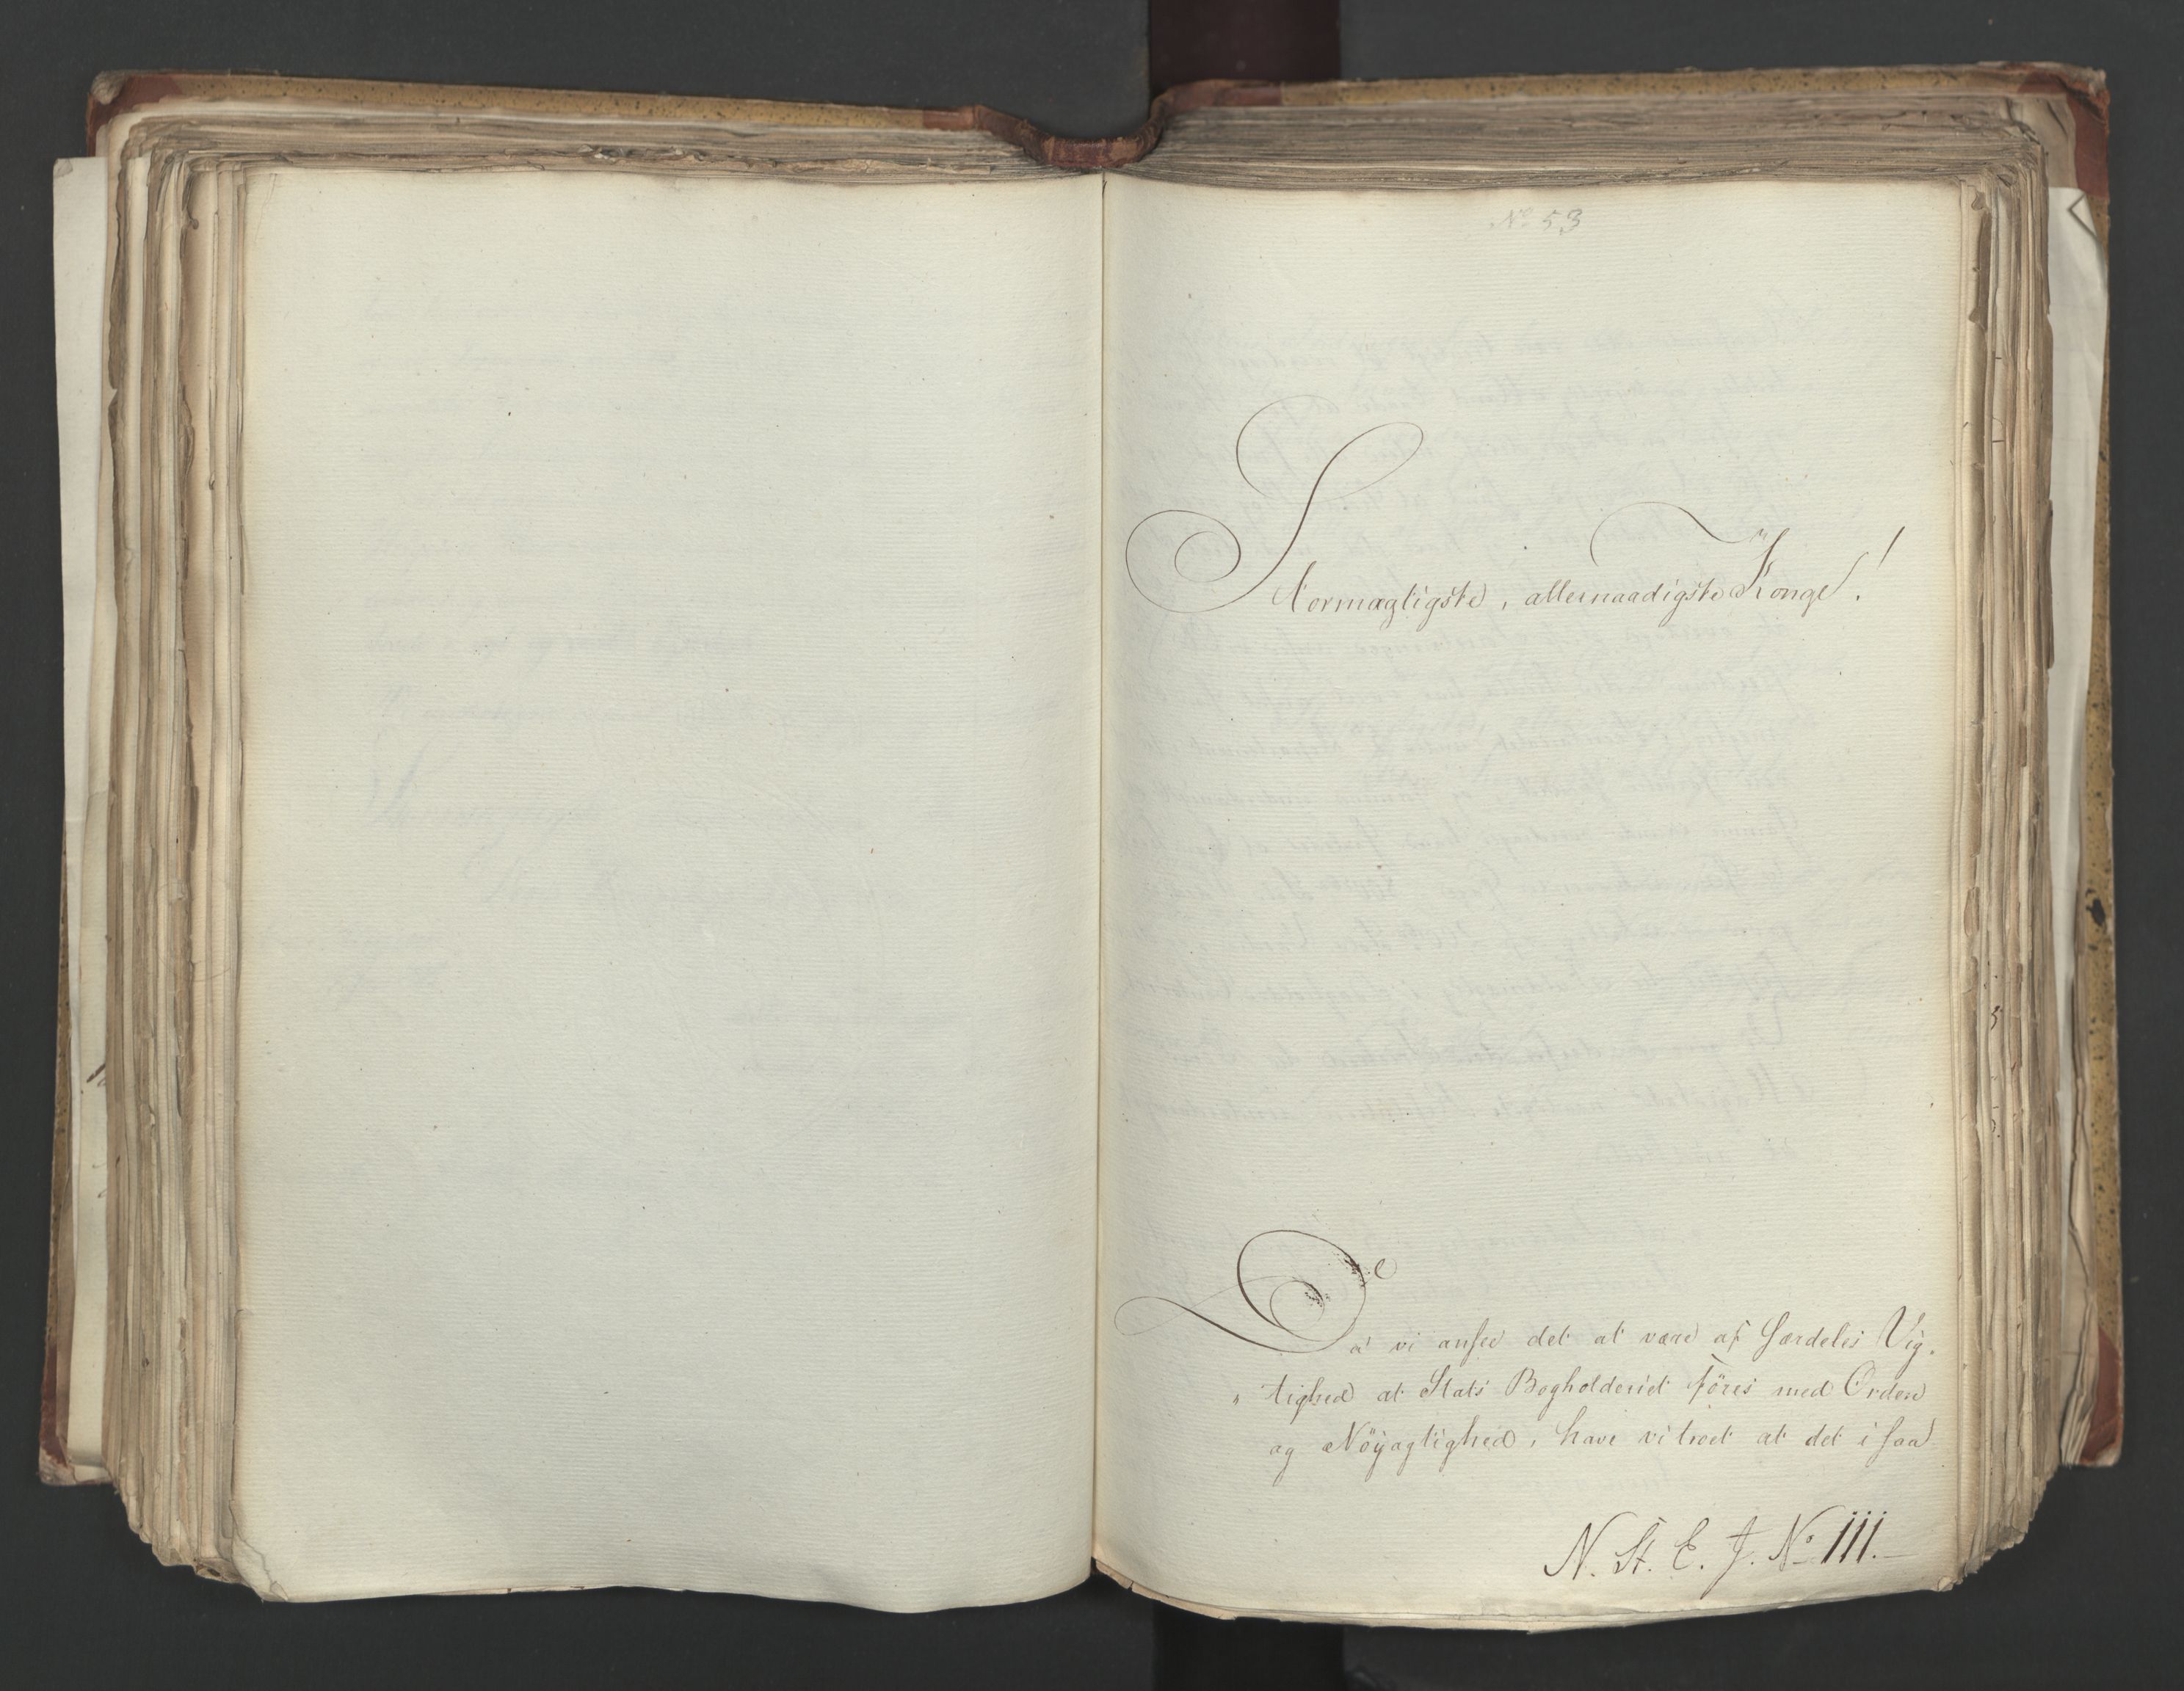 No 53
Stormægtigste, allernaadigste Konge!
Da vi ansee det at være af særdeles Vig-
„ tighed at Stats Bogholderiet föres med Orden
og Nöÿagtighed, have vi troet at det i saa
N. St. E. J. No 111.